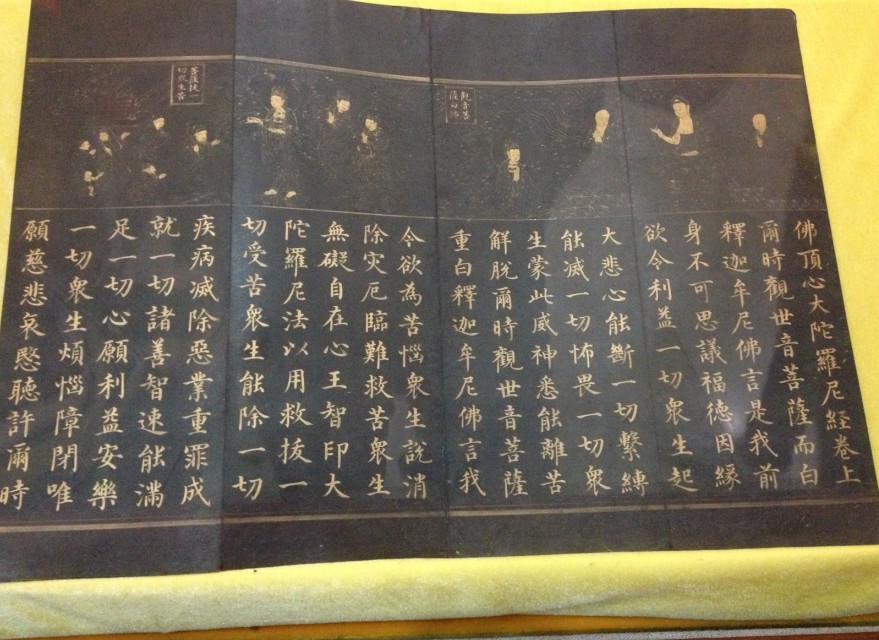 觀音菩
薩白佛
菩薩救一
切衆生苦
佛頂心大陀羅尼経卷上
爾時觀世音菩薩而白
釋迦牟尼佛言是我前
身不可思議福德因緣
欲令利益一切衆生起
大悲心能斷一切繫縛
能滅一切怖畏一切衆
生蒙此威神悉能離苦
解脫爾時觀世音菩薩
重白釋迦牟尼佛言我
今欲為苦惱衆生說消
除灾厄臨難救苦衆生
無礙自在心王智印大
陀羅尼法以用救拔一
切受苦衆生能除一切
疾病滅除惡業重罪成
就一切諸善智速能滿
足一切心願利益安樂
一切衆生煩惱障閉唯
願慈悲哀愍聽許爾時